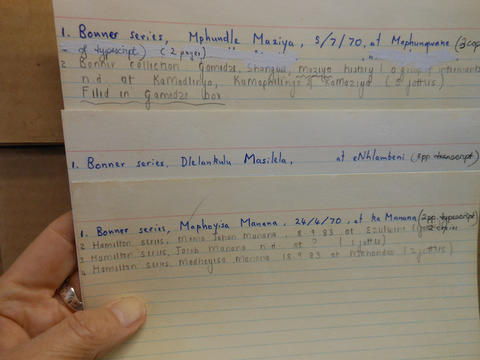 1. Bonner series, Mphundle Maziya, 5/7/70, at Maphungwane (2 cop
- of typescript) (2 pages)
2 Bonner collection. Gamedze, Shongwe, Maziya history (a group of interviews
n.d. at KaMadlinya, KaMaphilingo & KaMaziya (5 jottrs)
Filed in Gamedze box
1. Bonner series, Dlelankulu Masilela, at eNhlambeni (3pp. transcript)
1. Bonner series, Maphoyisa Manana, 24/4/70, at ka Manana (2pp. typescript)
2 Hamilton series, Manana, 8.9.83 at Ezulwini 2 copies
3 Hamilton series, Jacob Manana n.d. at ? (1 jottrs)
4 Hamilton series, Madhayisa Manana 18.9.83 at (2 jottrs)